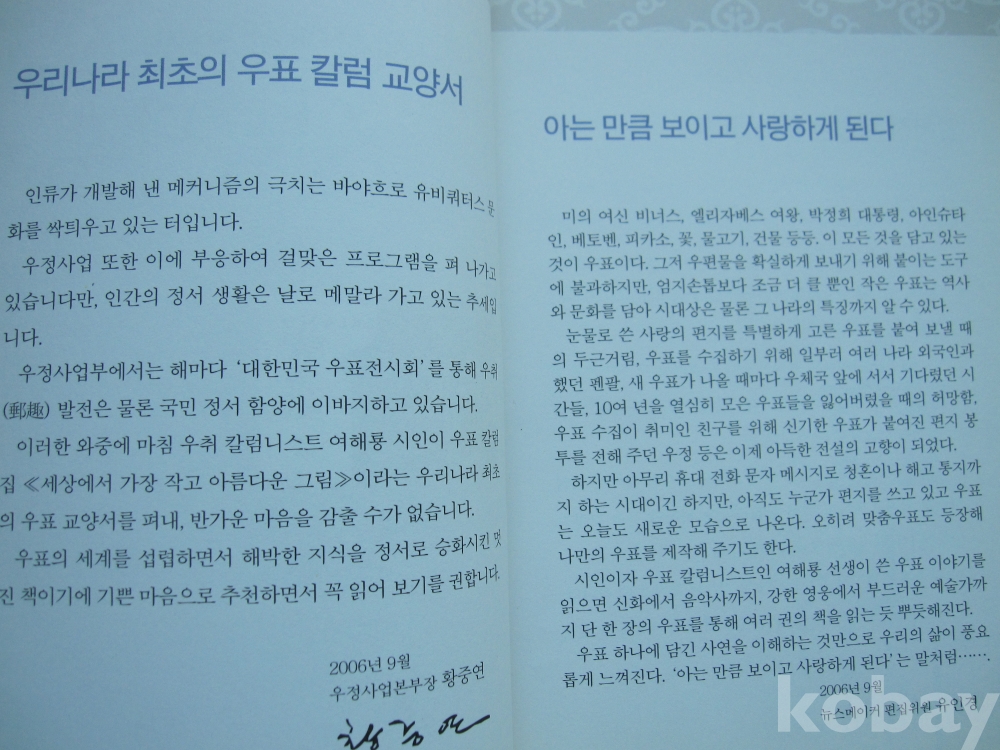 우리나라 최초의 우표 칼럼 교양서
인류가 개발해 낸 메커니즘의 극치는 바야흐로 유비쿼터스 문
화를 싹틔우고 있는 터입니다.
우정사업 또한 이에 부응하여 걸맞은 프로그램을 펴 나가고
있습니다만, 인간의 정서 생활은 날로 메말라 가고 있는 추세입
니다.
우정사업부에서는 해마다 ‘대한민국 우표전시회’를 통해 우취
(郵趣) 발전은 물론 국민 정서 함양에 이바지하고 있습니다.
이러한 와중에 마침 우취 칼럼니스트 여해룡 시인이 우표 칼럼
집 ≪세상에서 가장 작고 아름다운 그림≫이라는 우리나라 최초
의 우표 교양서를 펴내, 반가운 마음을 감출 수가 없습니다.
우표의 세계를 섭렵하면서 해박한 지식을 정서로 승화시킨 멋
진 책이기에 기쁜 마음으로 추천하면서 꼭 읽어 보기를 권합니다.
2006년 9월
우정사업본부장 황중연
황중연
아는 만큼 보이고 사랑하게 된다
미의 여신 비너스, 엘리자베스 여왕, 박정희 대통령, 아인슈타
인, 베토벤, 피카소, 꽃, 물고기, 건물 등등. 이 모든 것을 담고 있는
것이 우표이다. 그저 우편물을 확실하게 보내기 위해 붙이는 도구
에 불과하지만, 엄지손톱보다 조금 더 클 뿐인 작은 우표는 역사
와 문화를 담아 시대상은 물론 그 나라의 특징까지 알 수 있다.
눈물로 쓴 사랑의 편지를 특별하게 고른 우표를 붙여 보낼 때
의 두근거림, 우표를 수집하기 위해 일부러 여러 나라 외국인과
했던 펜팔, 새 우표가 나올 때마다 우체국 앞에 서서 기다렸던 시
간들, 10여 년을 열심히 모은 우표들을 잃어버렸을 때의 허망함,
우표 수집이 취미인 친구를 위해 신기한 우표가 붙여진 편지 봉
투를 전해 주던 우정 등은 이제 아득한 전설의 고향이 되었다.
하지만 아무리 휴대 전화 문자 메시지로 청혼이나 해고 통지까
지 하는 시대이긴 하지만, 아직도 누군가 편지를 쓰고 있고 우표
는 오늘도 새로운 모습으로 나온다. 오히려 맞춤우표도 등장해
나만의 우표를 제작해 주기도 한다.
시인이자 우표 칼럼니스트인 여해룡 선생이 쓴 우표 이야기를
읽으면 신화에서 음악사까지, 강한 영웅에서 부드러운 예술가까
지 단 한 장의 우표를 통해 여러 권의 책을 읽는 듯 뿌듯해진다.
우표 하나에 담긴 사연을 이해하는 것만으로 우리의 삶이 풍요
롭게 느껴진다. ‘아는 만큼 보이고 사랑하게 된다’는 말처럼…….
2006년 9월
뉴스메이커 편집위원 유인경
kobay